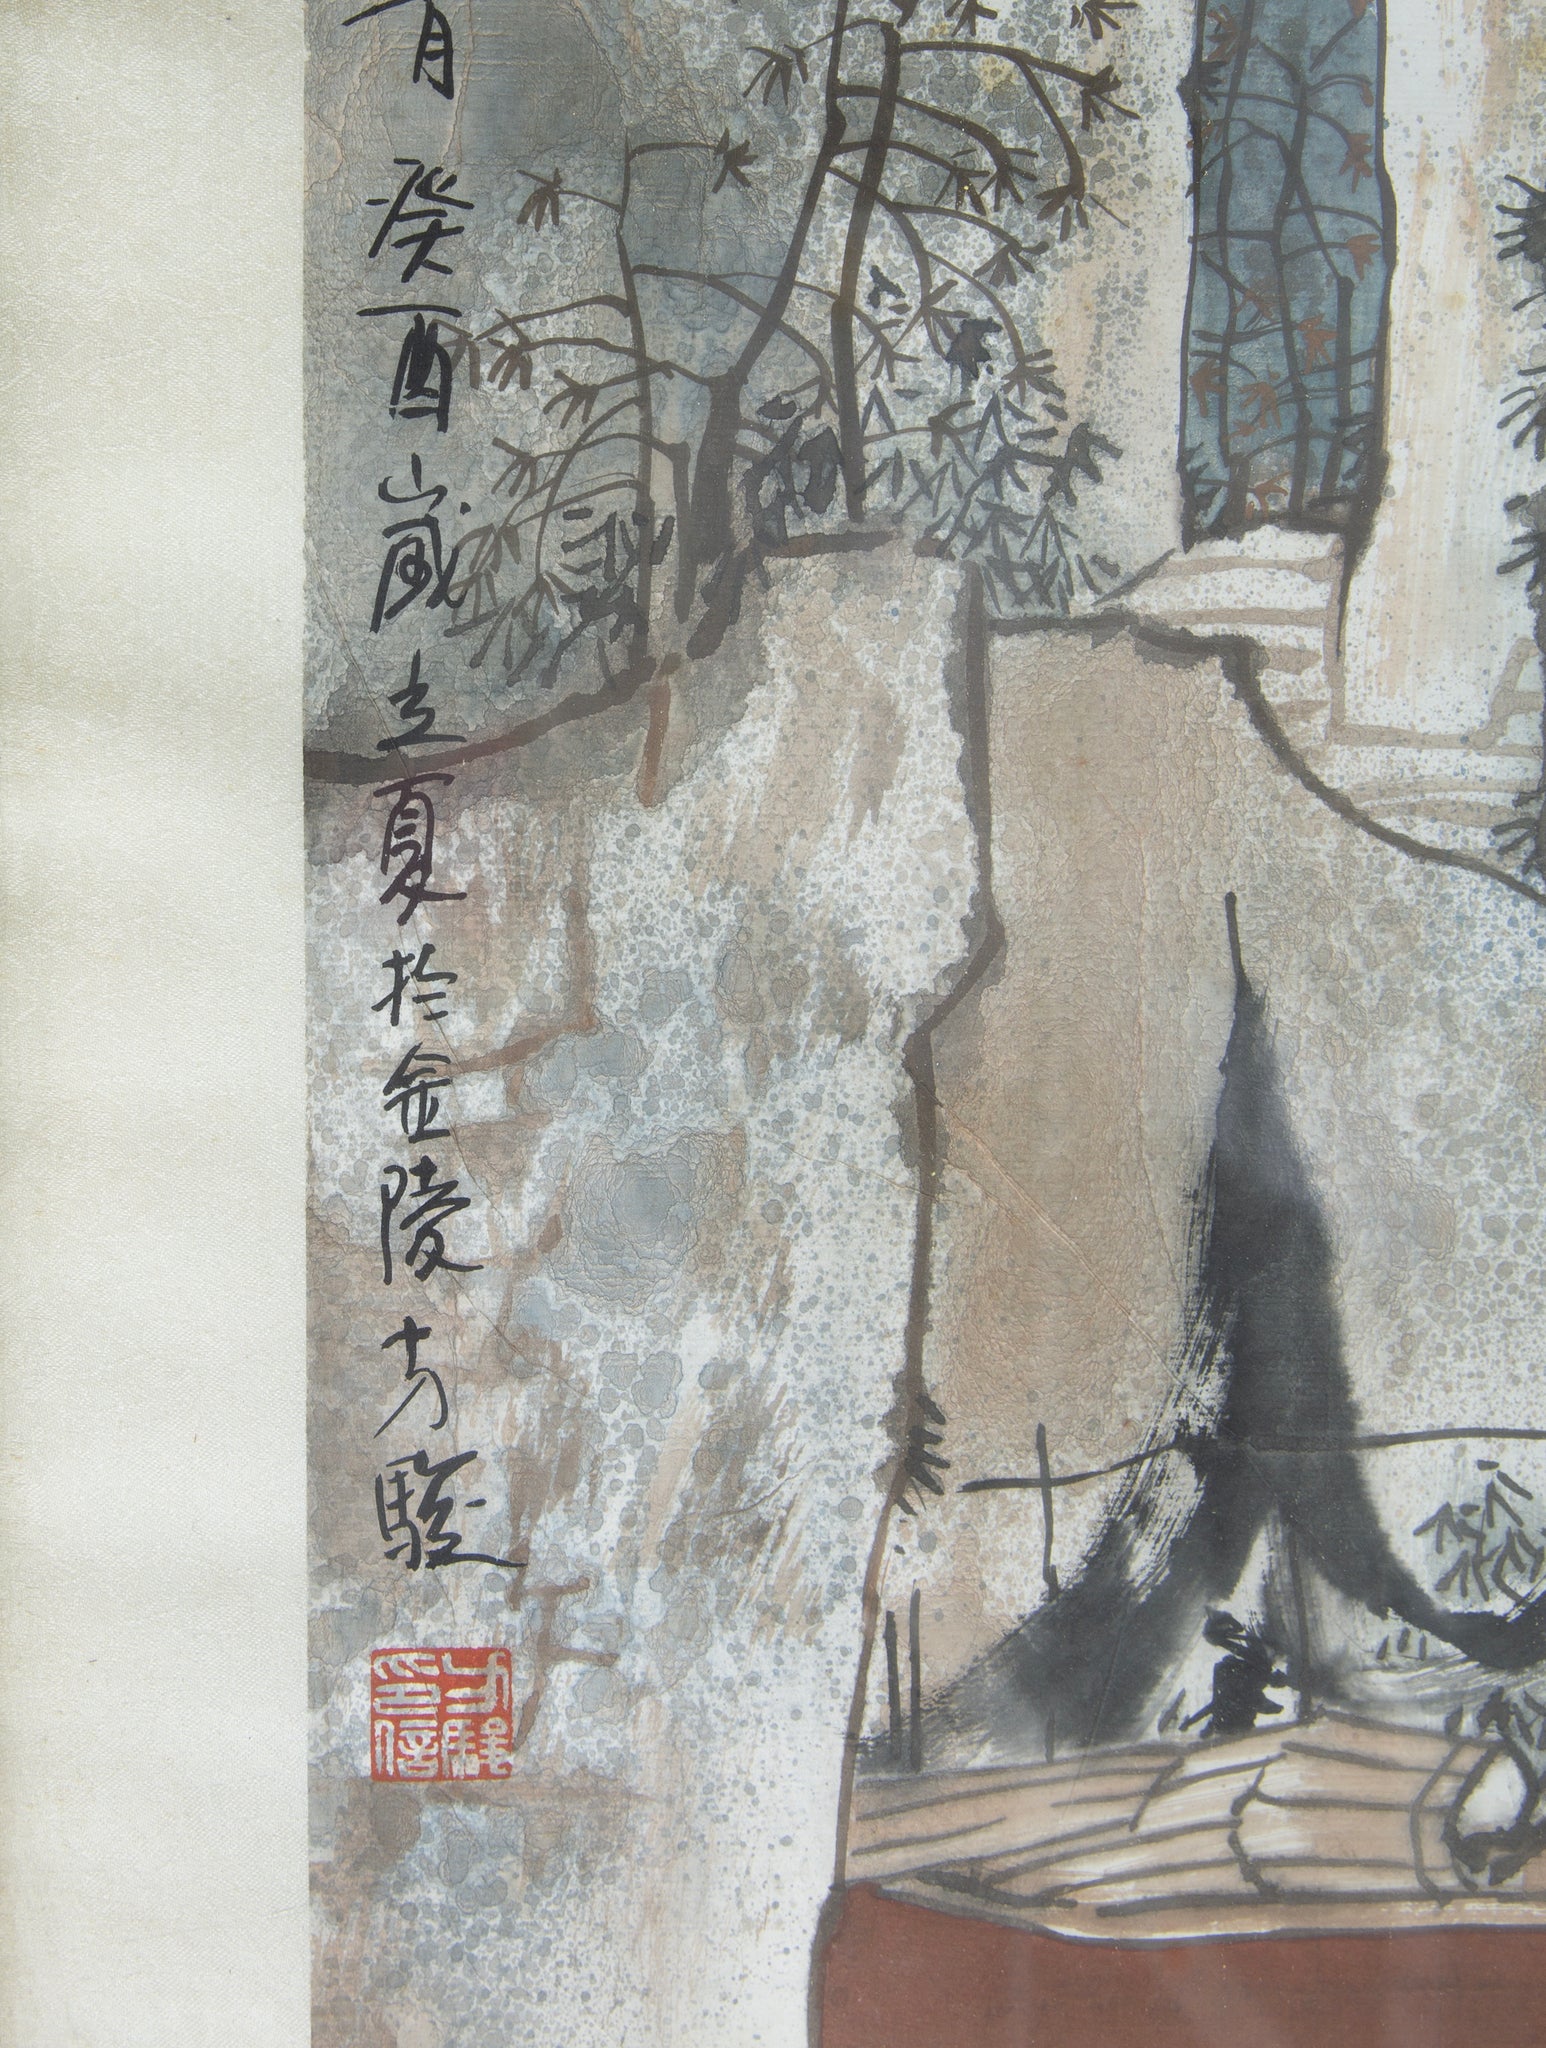 癸酉歲立夏於金陵方駿
方駿
印信